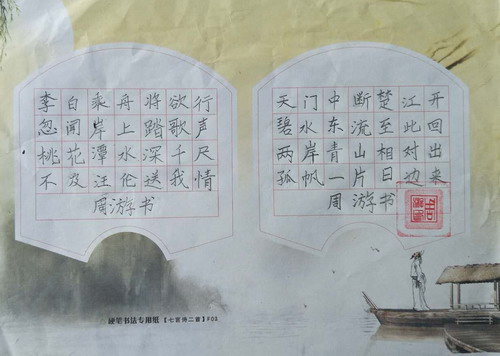 李白乘舟将欲行
忽闻岸上踏歌声
桃花潭水深千尺
不及汪伦送我情
周游书
天门中断楚江开
碧水东流至此回
两岸青山相对出
孤帆一片日边来
周游书
硬笔书法专用纸【七言诗二首】F03